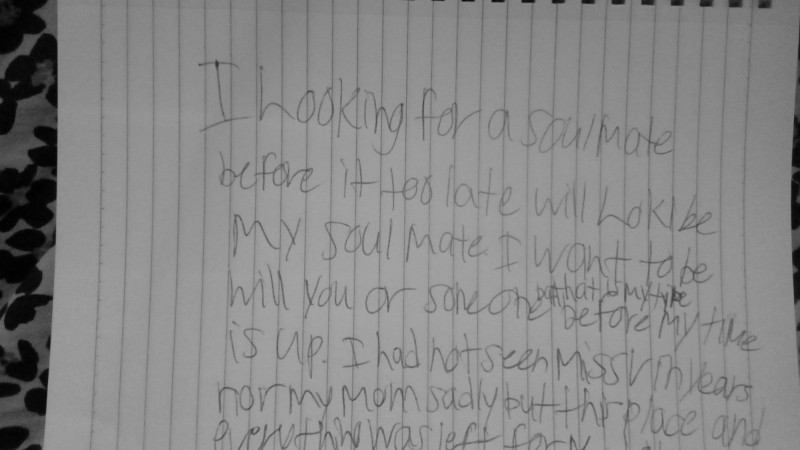 I Looking for a soulmate
before it too late will Loki be
My soulmate. I want to be
will you or someone that is my type before My time
is up. I had not seen Miss V in years
nor my Mom sadly but this place and
everything was left for